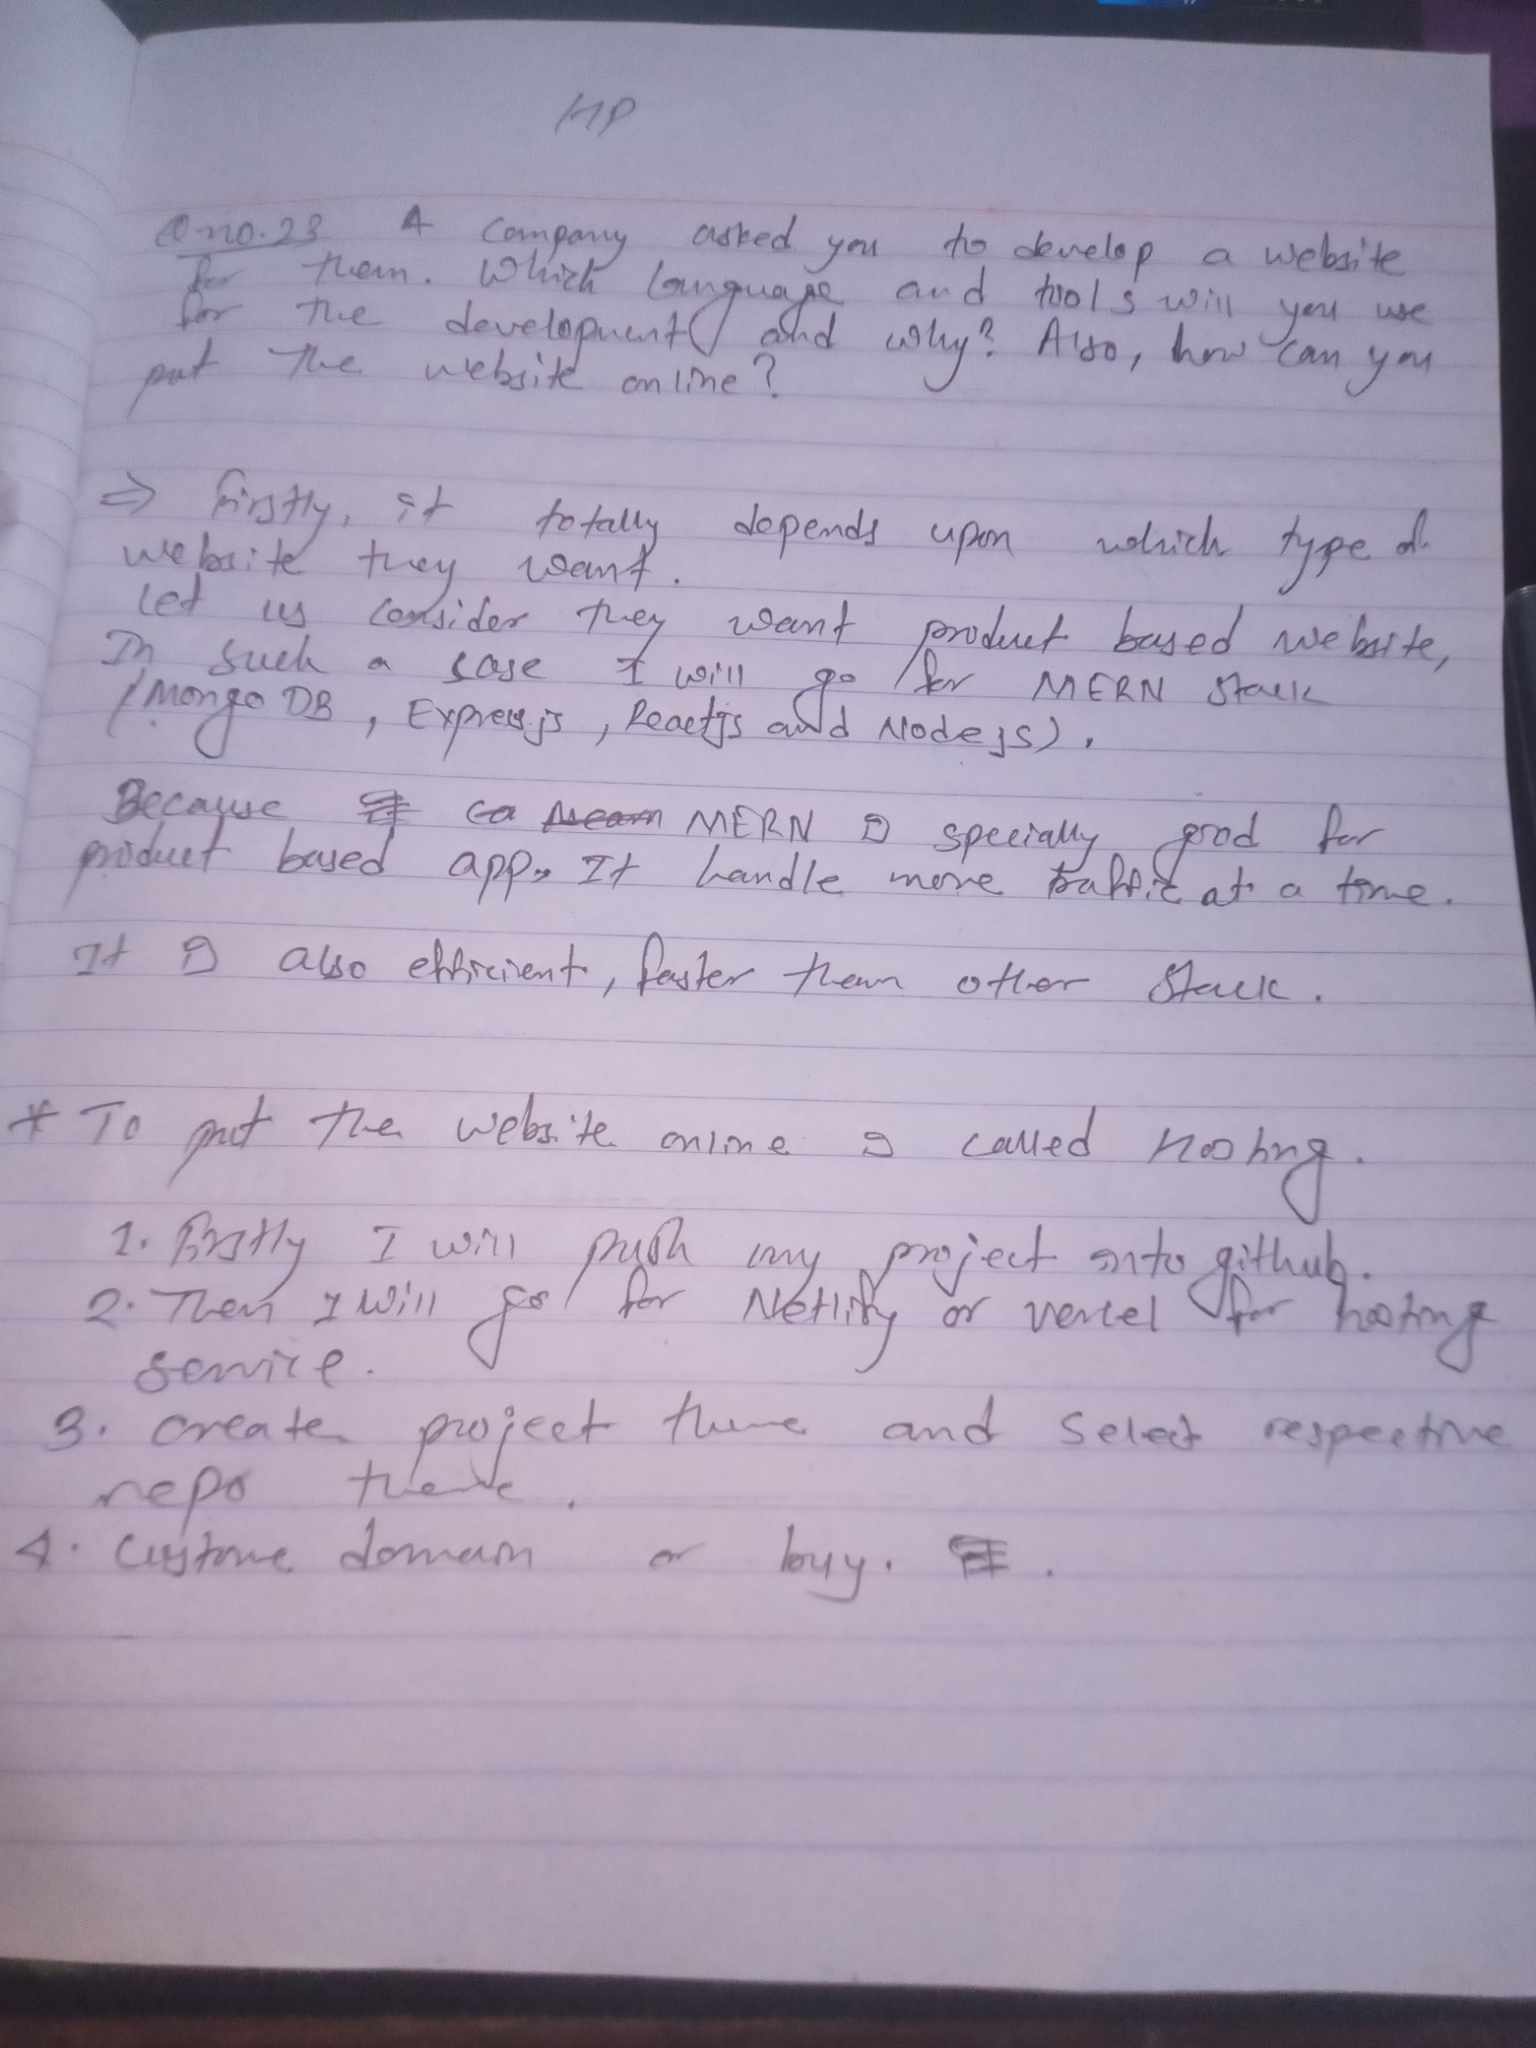 HP
Q no. 23 A Company asked you to develop a website
for them. Which language and tools will you use
for the development and why? Also, how can you
put the website online?
⇒ Firstly, it totally depends upon which type of
website they want.
Let us consider they want product based website,
In such a case I will go for MERN Stack
(Mongo DB, Express.js, Reactjs and Nodejs).
Because MERN is specially good for
product based app. It handle more traffic at a time.
It is also efficient, faster than other Stack.
* To put the website online is called hosting.
1. Firstly I will push my project into github.
2. Then I will go for Netlify or vercel for hosting
service.
3. create project there and Select respective
repo there.
4. Custome domain or buy.